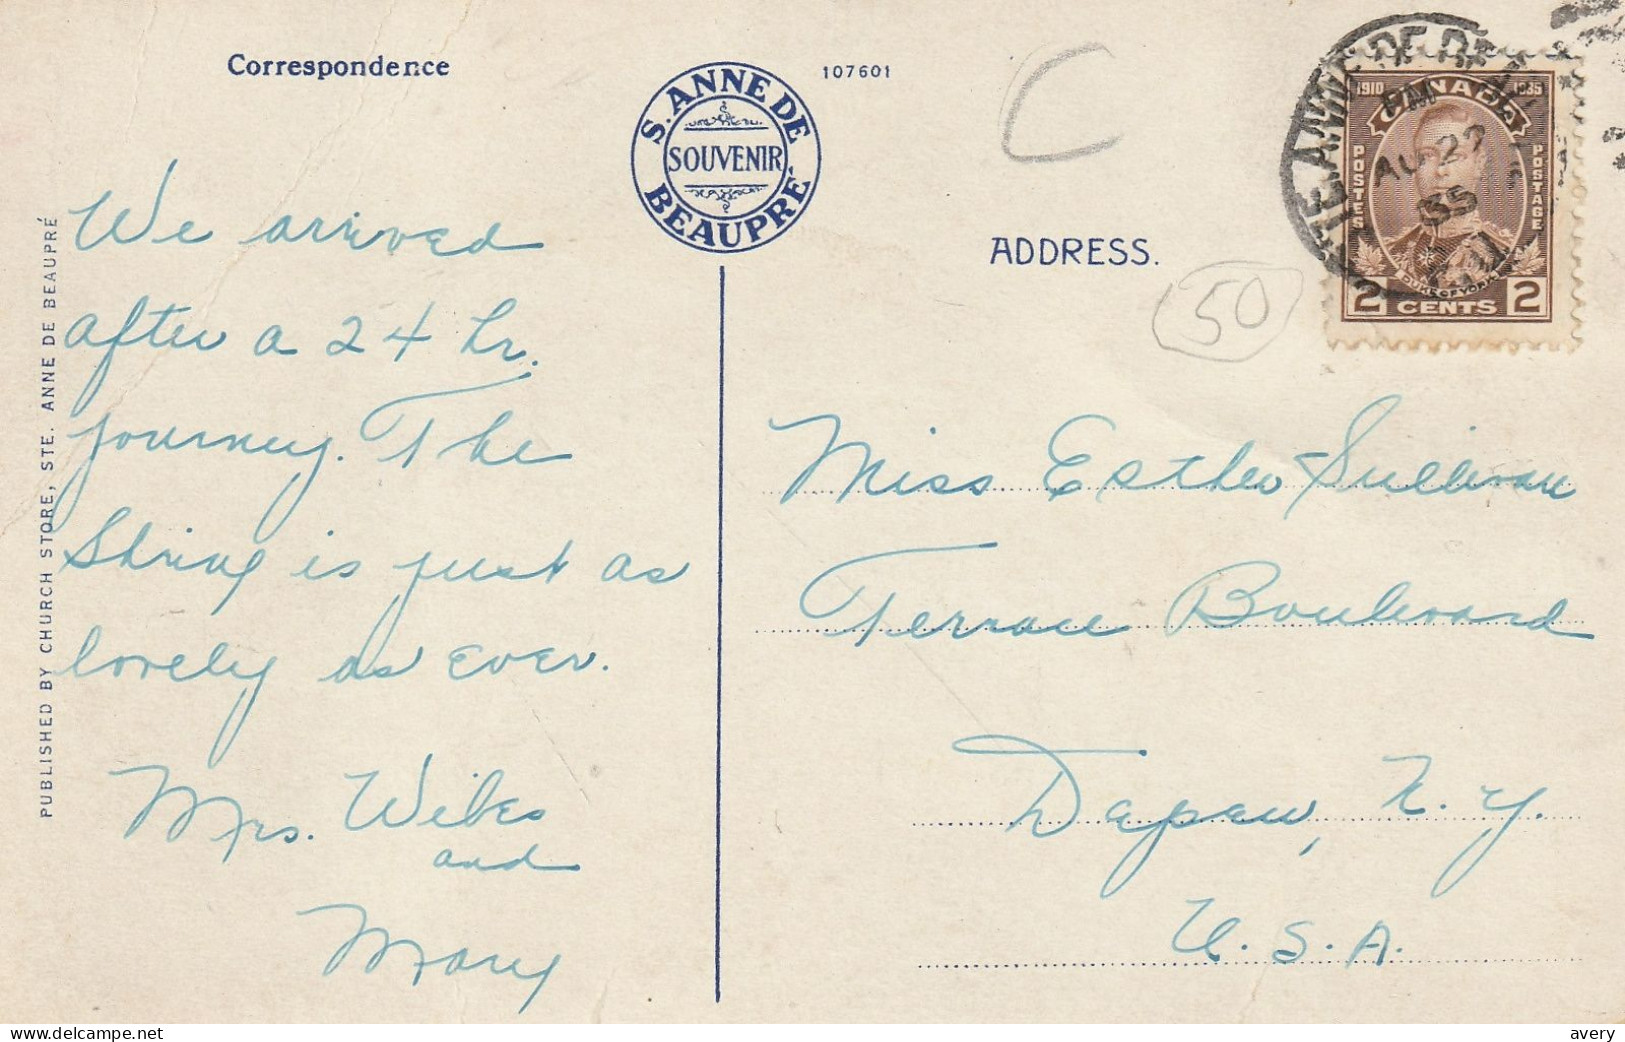 Correspondence
S. ANNE DE
SOUVENIR
BEAUPRÉ
107601
C
ADDRESS.
50
1910 CANADA 1935
POSTES
POSTAGE
DUKE OF YORK
2 CENTS 2
STE. ANNE DE BE
PM
AU 27
35
PUBLISHED BY CHURCH STORE, STE. ANNE DE BEAUPRÉ
We arrived
after a 24 hr.
journey. The
Shrine is just as
lovely as ever.
Mrs. Wilks
and
Mary
Miss Esther Sullivan
Terrace Boulevard
Depew, N.Y.
U.S.A.
www.delcampe.net
avery